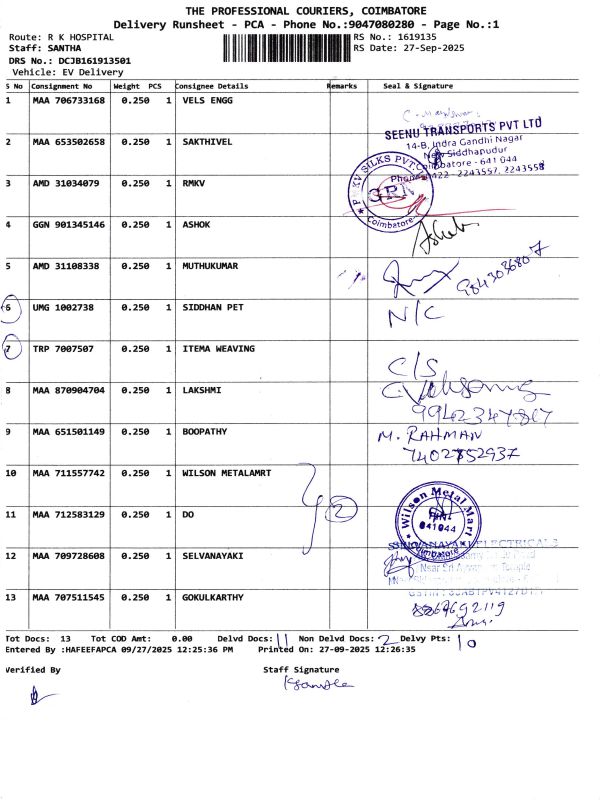 THE PROFESSIONAL COURIERS, COIMBATORE
Delivery Runsheet - PCA - Phone No.:9047080280 - Page No.:1
Route: R K HOSPITAL
RS No.: 1619135
Staff: SANTHA
RS Date: 27-Sep-2025
DRS No.: DCJB161913501
Vehicle: EV Delivery
S No Consignment No Weight PCS Consignee Details Remarks Seal & Signature
1 MAA 706733168 0.250 1 VELS ENGG
SEENU TRANSPORTS PVT LTD
14-B, Indra Gandhi Nagar
New Siddhapudur
Coimbatore - 641 044
Phone: 0422 - 2243557, 2243558
2 MAA 653502658 0.250 1 SAKTHIVEL
3 AMD 31034079 0.250 1 RMKV
SILKS PVT
GRN
Coimbatore
4 GGN 901345146 0.250 1 ASHOK
Ashok
5 AMD 31108338 0.250 1 MUTHUKUMAR
9843036807
6 UMG 1002738 0.250 1 SIDDHAN PET
N/C
7 TRP 7007507 0.250 1 ITEMA WEAVING
C/S
8 MAA 870904704 0.250 1 LAKSHMI
9942347817
9 MAA 651501149 0.250 1 BOOPATHY
M. RAHMAN
7402752937
10 MAA 711557742 0.250 1 WILSON METALAMRT
2
Wilson Metal Mart
641044
Coimbatore
11 MAA 712583129 0.250 1 DO
12 MAA 709728608 0.250 1 SELVANAYAKI
ELECTRICALS
13 MAA 707511545 0.250 1 GOKULKARTHY
Tot Docs: 13 Tot COD Amt: 0.00 Delvd Docs: 11 Non Delvd Docs: 2 Delvy Pts: 10
Entered By :HAFEEFAPCA 09/27/2025 12:25:36 PM Printed On: 27-09-2025 12:26:35
Verified By
Staff Signature